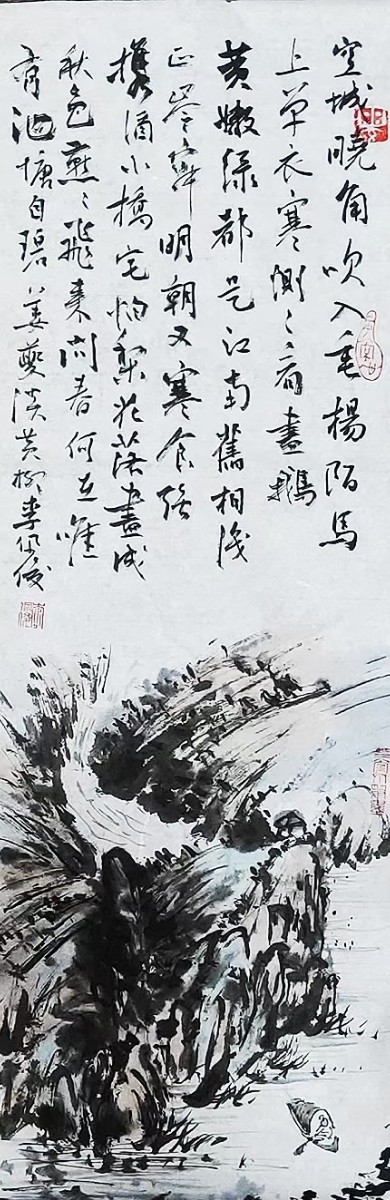 空城曉角吹入垂楊陌馬
上单衣寒惻〻看盡鵝
黄嫩绿都是江南舊相識
正岑寂明朝又寒食強
携酒小橋宅怕梨花落盡成
秋色燕〻飛来问春何在唯
有池塘自碧 姜夔淡黄柳 李